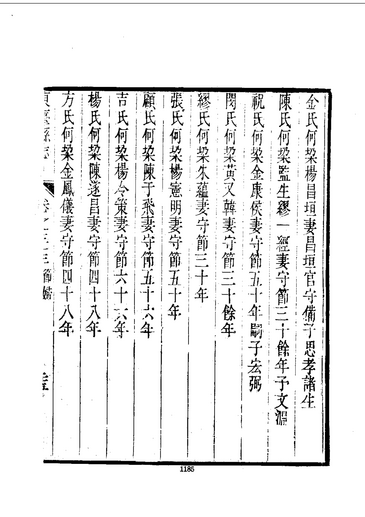 金氏何梁楊昌垣妻昌垣官守備子思孝諸生
陳氏何梁監生繆一經妻守節三十餘年子文淵
祝氏何梁金康侯妻守節五十年嗣子宏弼
閔氏何梁黃又韓妻守節三十餘年
繆氏何梁朱蘊妻守節三十年
張氏何梁楊憲明妻守節五十年
顧氏何梁陳于飛妻守節五十六年
吉氏何梁楊令策妻守節六十六年
楊氏何梁陳遂昌妻守節四十八年
方氏何梁金鳳儀妻守節四十八年
卷之三十三 節婦
1185